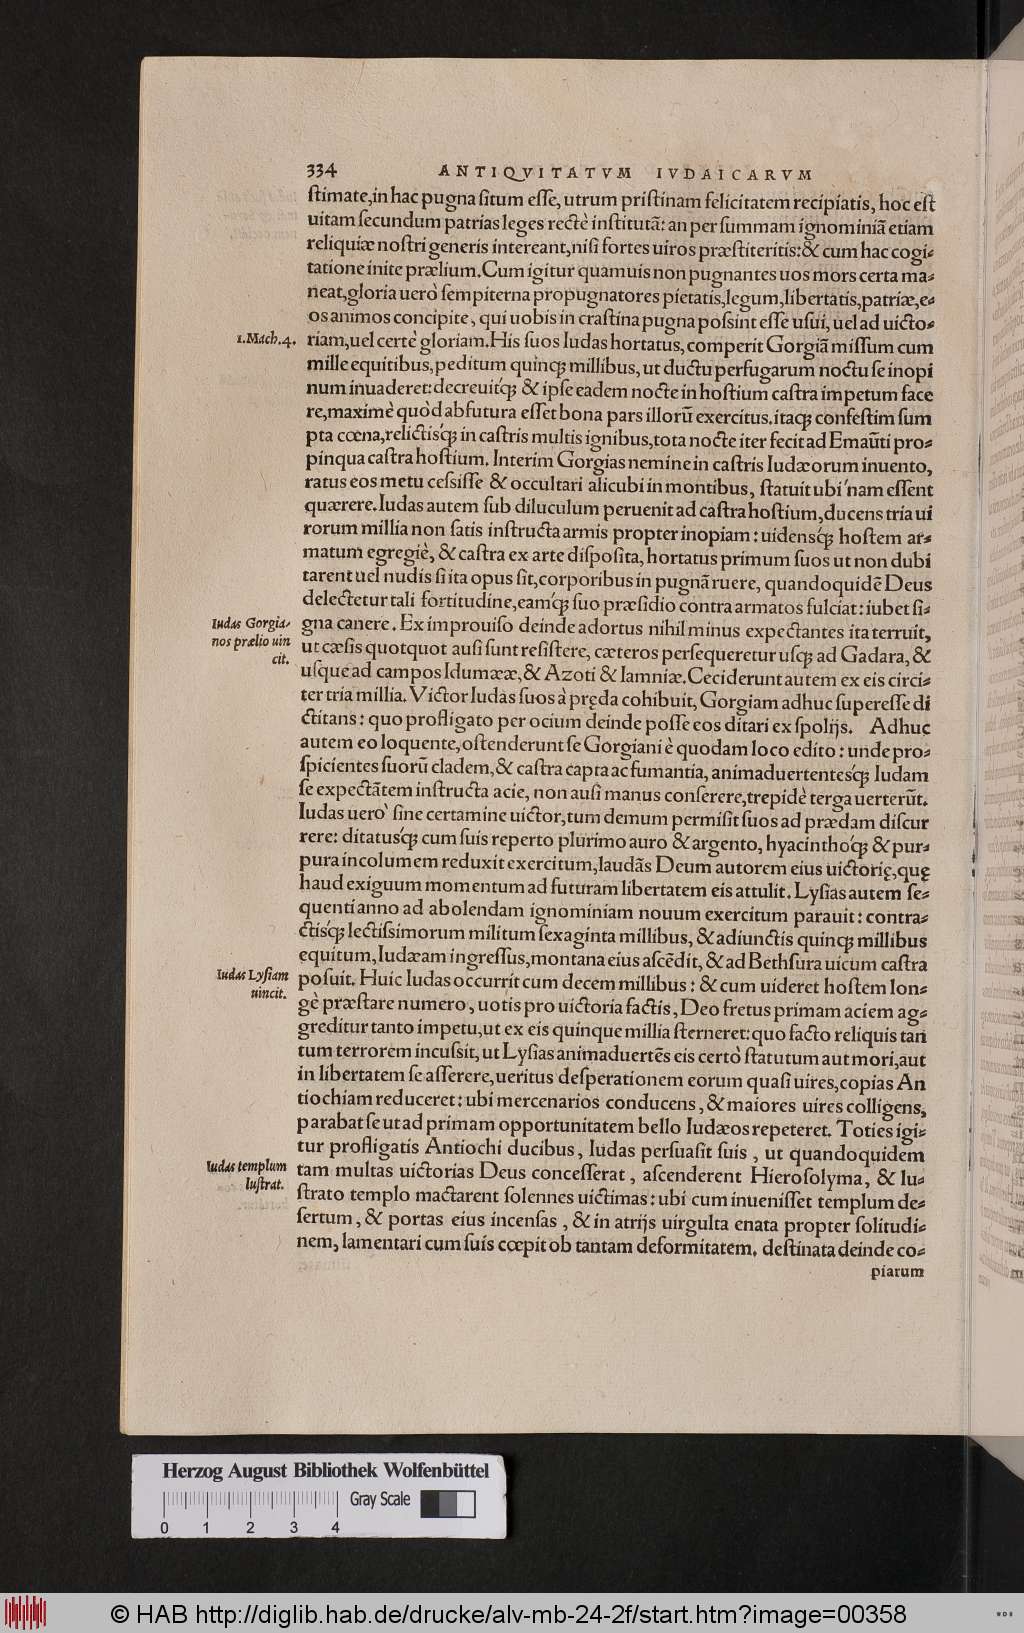 334 ANTIQVITATVM IVDAICARVM
ſtimate,in hac pugna ſitum eſſe, utrum priſtinam felicitatem recipiatis, hoc eſt
uitam ſecundum patrias leges rectè inſtitutã: an per ſummam ignominiã etiam
reliquiæ noſtri generis intereant,niſi fortes uiros præſtiteritis:& cum hac cogi-
tatione inite prælium. Cum igitur quamuis non pugnantes uos mors certa ma-
neat,gloria uerò ſempiterna propugnatores pietatis,legum,libertatis,patriæ,e-
os animos concipite, qui uobis in craſtina pugna poſsint eſſe uſui, uel ad uicto-
1.Mach.4.
riam,uel certè gloriam. His ſuos Iudas hortatus, comperit Gorgiã miſſum cum
mille equitibus, peditum quinq; millibus, ut ductu perfugarum noctu ſe inopi
num inuaderet: decreuitq́; & ipſe eadem nocte in hoſtium caſtra impetum face
re,maximè quòd abfutura eſſet bona pars illorũ exercitus. itaq; confeſtim ſum
pta cœna,relictisq́; in caſtris multis ignibus,tota nocte iter fecit ad Emaũti pro-
pinqua caſtra hoſtium. Interim Gorgias nemine in caſtris Iudæorum inuento,
ratus eos metu ceſsiſſe & occultari alicubi in montibus, ſtatuit ubi'nam eſſent
quærere. Iudas autem ſub diluculum peruenit ad caſtra hoſtium,ducens tria ui
rorum millia non ſatis inſtructa armis propter inopiam: uidensq́; hoſtem ar-
matum egregiè, & caſtra ex arte diſpoſita, hortatus primum ſuos ut non dubi
tarent uel nudis ſi ita opus ſit,corporibus in pugnã ruere, quandoquidẽ Deus
delectetur tali fortitudine,eamq́; ſuo præſidio contra armatos fulciat: iubet ſi-
Iudas Gorgia-
nos prælio uin
cit.
gna canere. Ex improuiſo deinde adortus nihil minus expectantes ita terruit,
ut cæſis quotquot auſi ſunt reſiſtere, cæteros perſequeretur uſq; ad Gadara, &
uſque ad campos Idumææ, & Azoti & Iamniæ. Ceciderunt autem ex eis circi-
ter tria millia. Victor Iudas ſuos à pręda cohibuit, Gorgiam adhuc ſupereſſe di
ctitans: quo profligato per ocium deinde poſſe eos ditari ex ſpolijs. Adhuc
autem eo loquente,oſtenderunt ſe Gorgiani è quodam loco edito: unde pro-
ſpicientes ſuorũ cladem,& caſtra capta ac fumantia, animaduertentesq́; Iudam
ſe expectãtem inſtructa acie, non auſi manus conſerere,trepidè terga uerterũt.
Iudas uerò ſine certamine uictor,tum demum permiſit ſuos ad prædam diſcur
rere: ditatusq́; cum ſuis reperto plurimo auro & argento, hyacinthoq́; & pur-
pura incolumem reduxit exercitum,laudãs Deum autorem eius uictorię,quę
haud exiguum momentum ad futuram libertatem eis attulit. Lyſias autem ſe-
quenti anno ad abolendam ignominiam nouum exercitum parauit: contra-
ctisq́; lectiſsimorum militum ſexaginta millibus, & adiunctis quinq; millibus
equitum,Iudæam ingreſſus,montana eius aſcẽdit, & ad Bethſura uicum caſtra
Iudas Lyſiam
uincit.
poſuit. Huic Iudas occurrit cum decem millibus: & cum uideret hoſtem lon-
gè præſtare numero, uotis pro uictoria factis, Deo fretus primam aciem ag-
greditur tanto impetu,ut ex eis quinque millia ſterneret:quo facto reliquis tan
tum terrorem incuſsit, ut Lyſias animaduertẽs eis certò ſtatutum aut mori,aut
in libertatem ſe aſſerere,ueritus deſperationem eorum quaſi uires,copias An
tiochiam reduceret: ubi mercenarios conducens, & maiores uires colligens,
parabat ſe ut ad primam opportunitatem bello Iudæos repeteret. Toties igi-
tur profligatis Antiochi ducibus, Iudas perſuaſit ſuis, ut quandoquidem
Iudas templum
luſtrat.
tam multas uictorias Deus conceſſerat, aſcenderent Hieroſolyma, & lu-
ſtrato templo mactarent ſolennes uictimas: ubi cum inueniſſet templum de-
ſertum, & portas eius incenſas, & in atrijs uirgulta enata propter ſolitudi-
nem, lamentari cum ſuis cœpit ob tantam deformitatem. deſtinata deinde co-
piarum
Herzog August Bibliothek Wolfenbüttel
Gray Scale
0 1 2 3 4
© HAB http://diglib.hab.de/drucke/alv-mb-24-2f/start.htm?image=00358